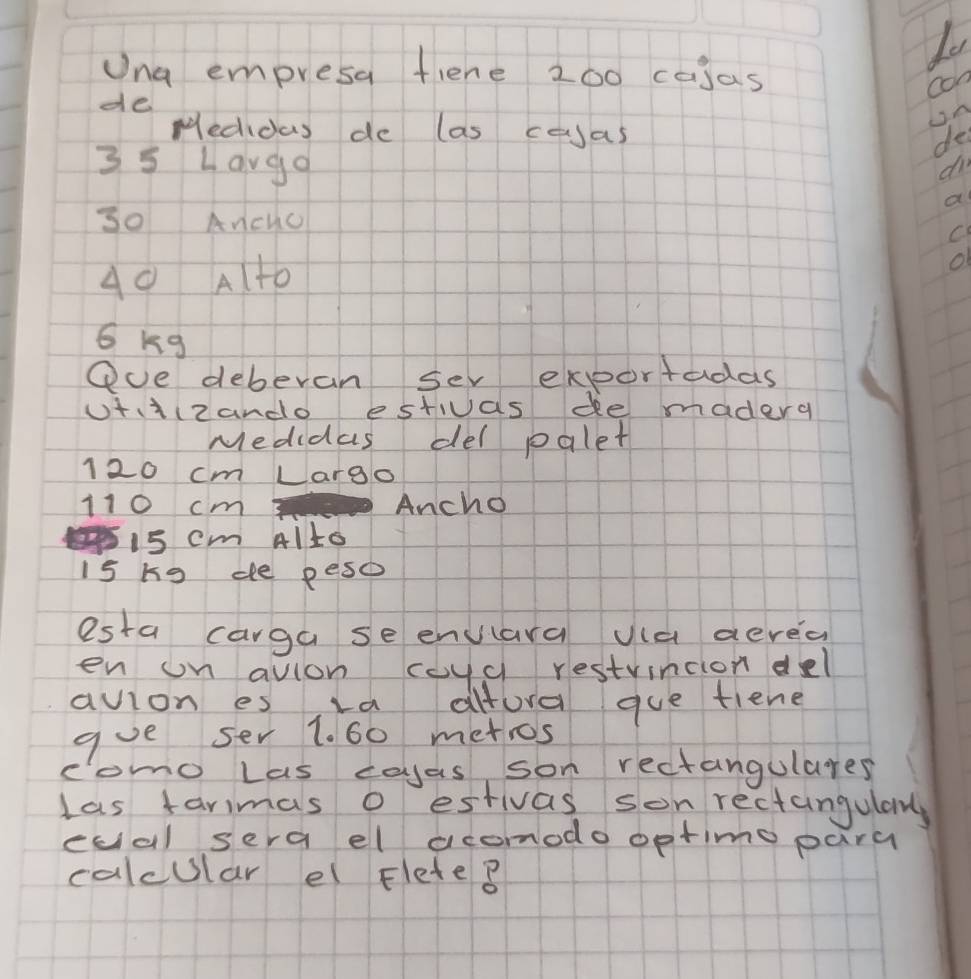 Una empresa tiene 200 cajas
de
Medidas de las cajas
35 Largo
30 Ancho
40 Alto
6 Kg
Que deberan ser exportadas
utilizando estivas de madera
Medidas del palet
120 cm Largo
110 cm Ancho
15 cm Alto
15 Kg de peso
esta carga se enviara via aeréa
en un avion cuya restrincion del
avion es La altura que tiene
que ser 1.60 metros
como Las cajas, son rectangulares
Las tarimas o estivas son rectangulares
cual sera el acomodo optimo para
calcular el Flete?
La
con
un
de
di
a
c